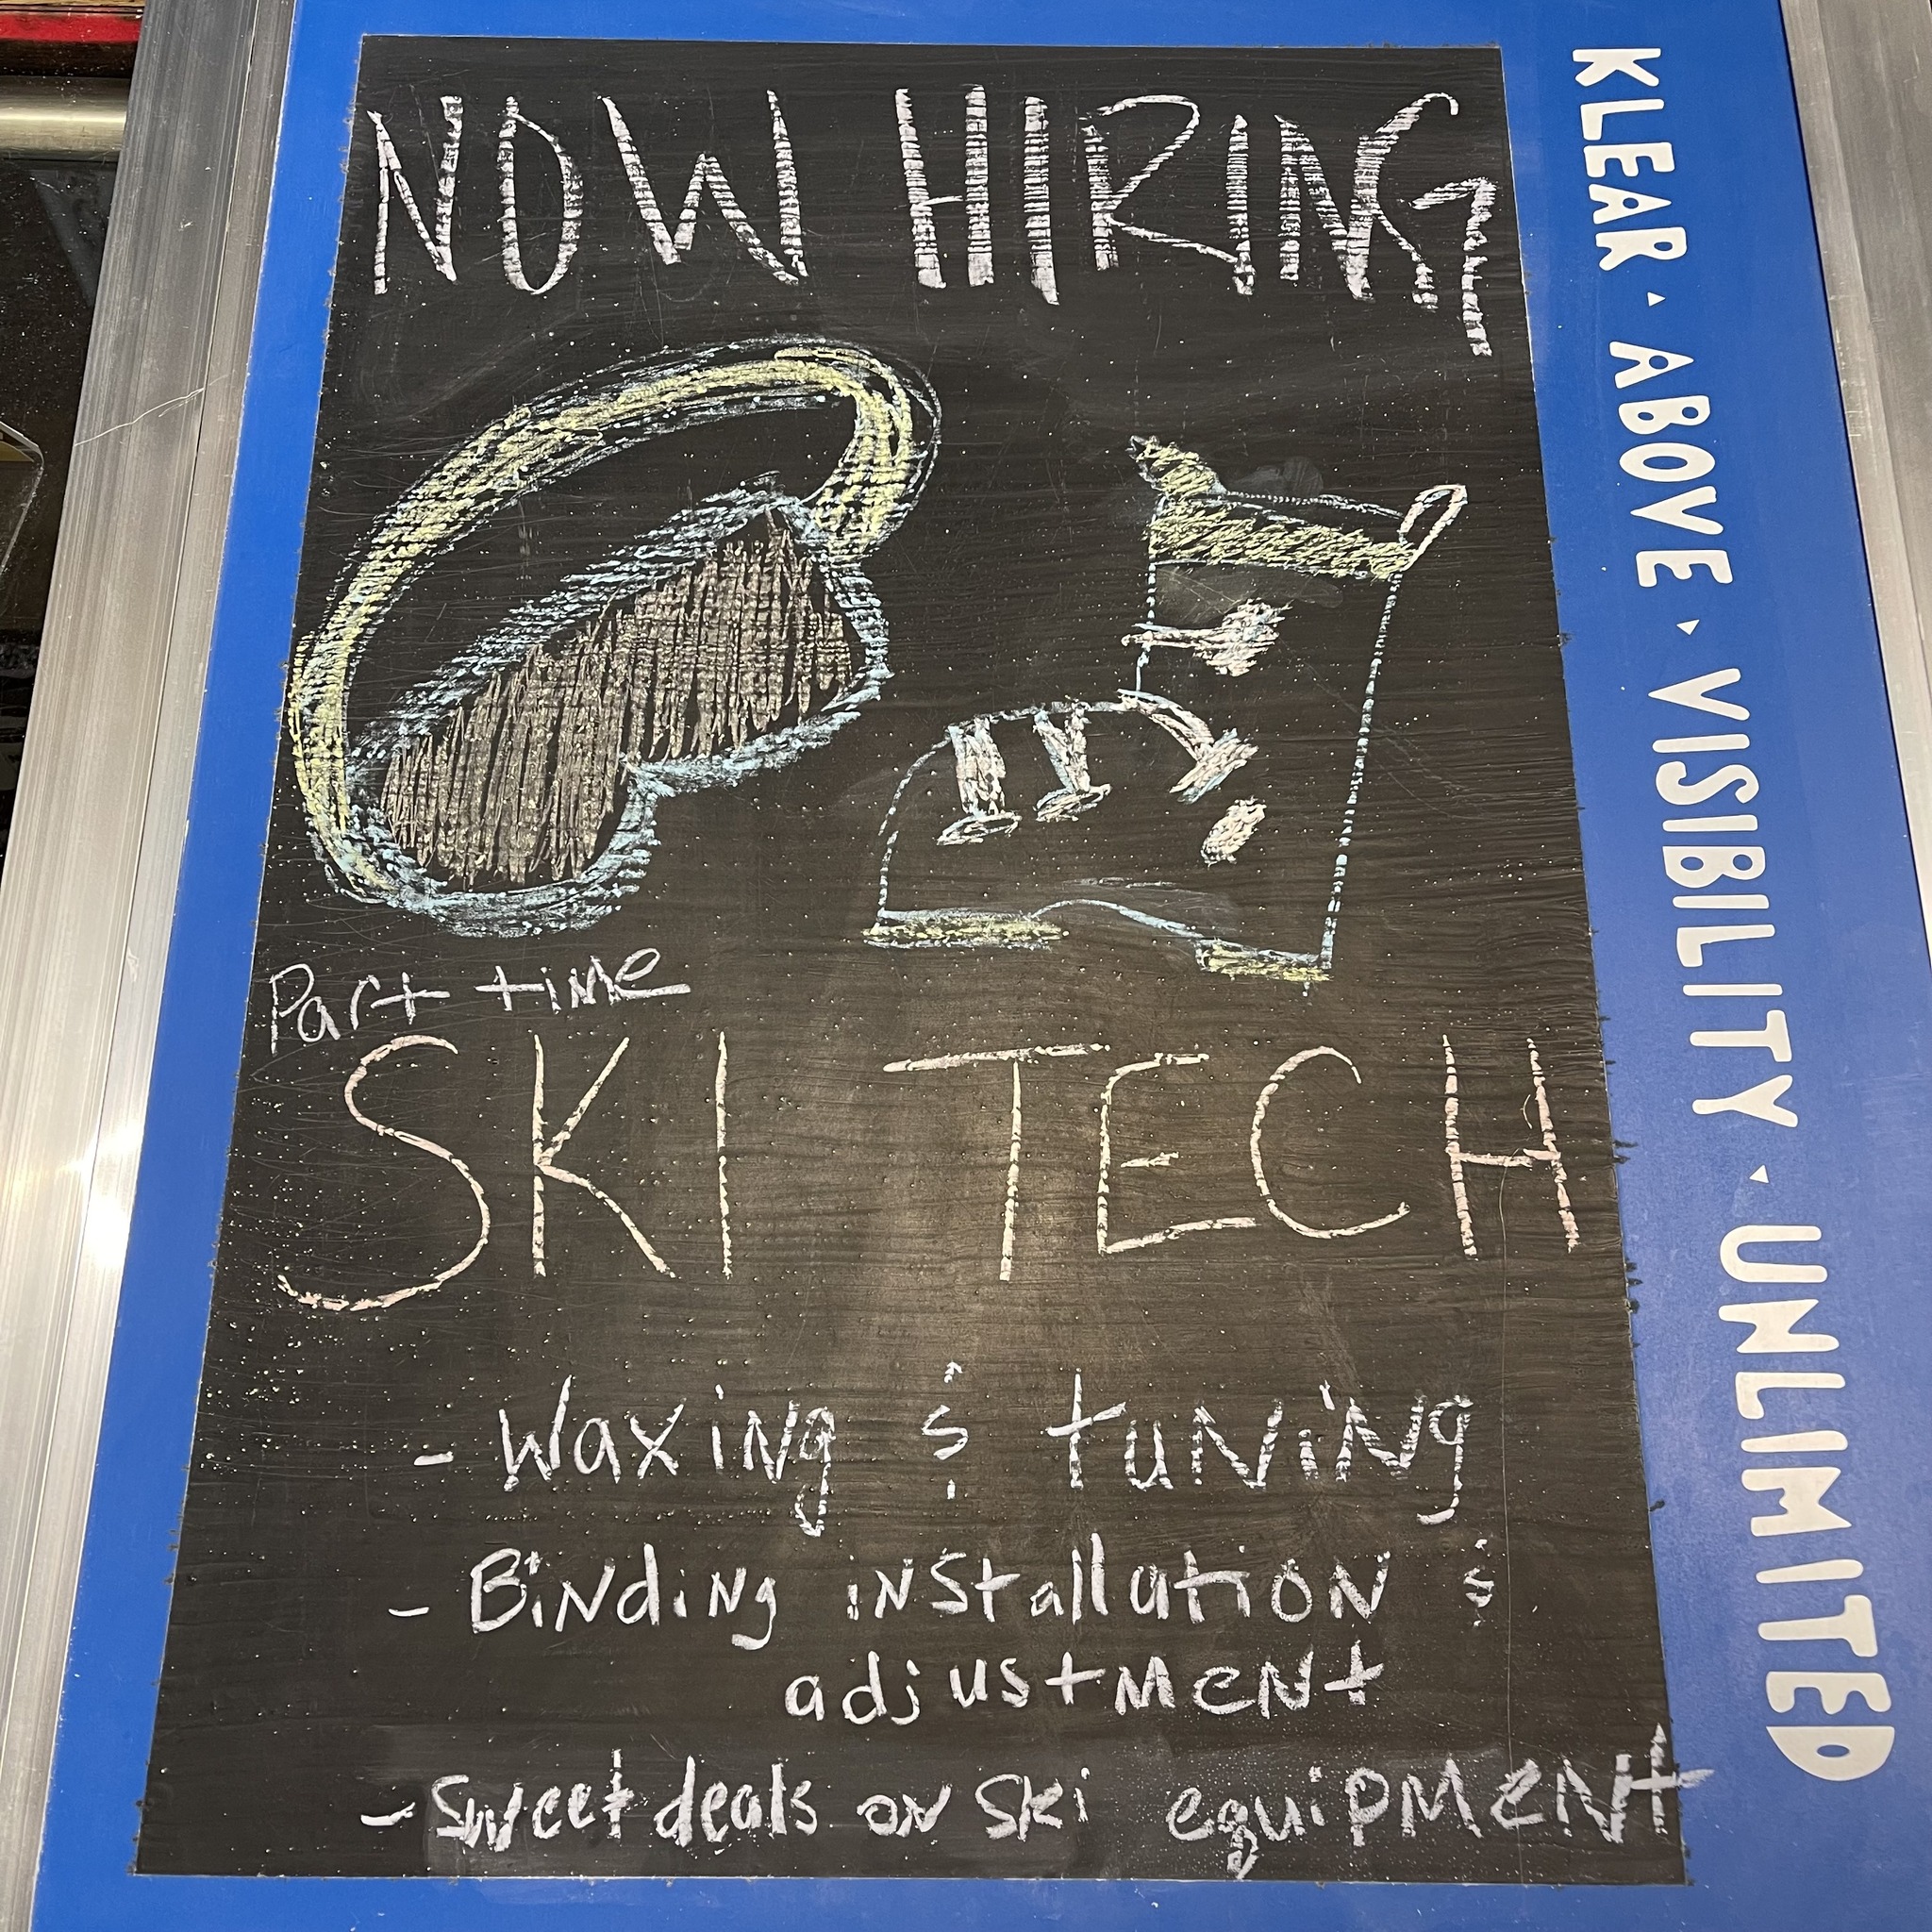 NOW HIRING
Part time
SKI TECH
- Waxing & tuning
- Binding installation &
adjustment
- Sweet deals on ski equipment
KLEAR · ABOVE · VISIBILITY · UNLIMITED